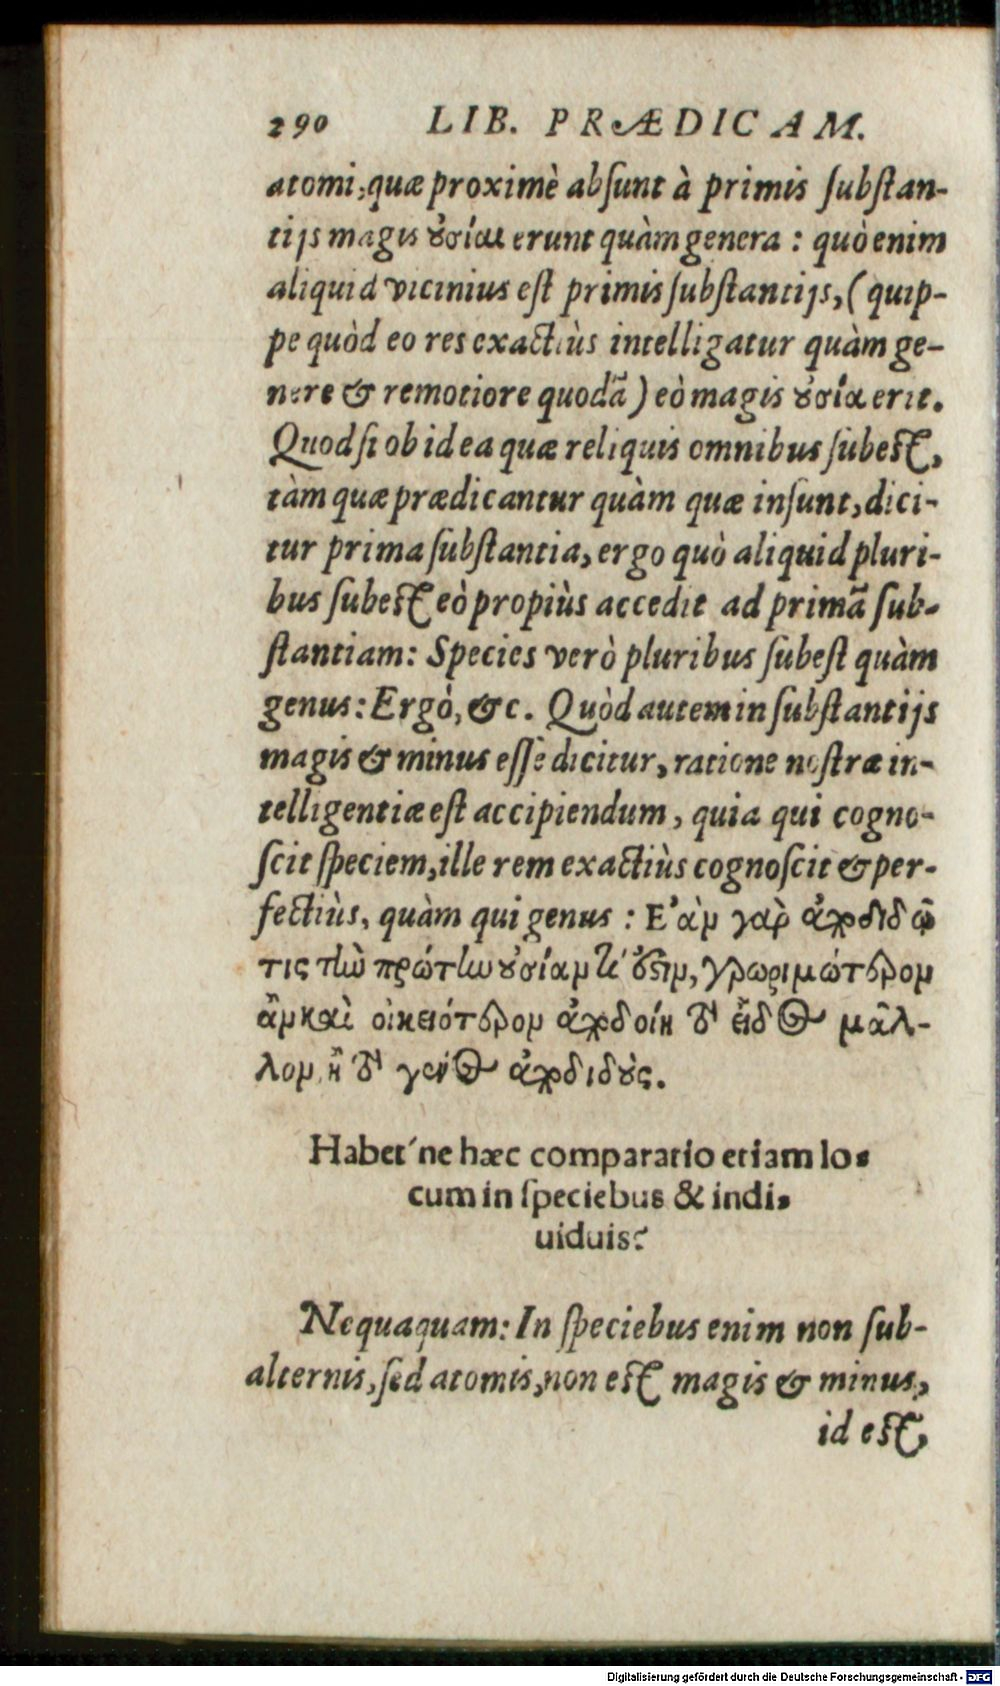 290 LIB. PRÆDICAM.
atomi, quæ proximè absunt à primis substan-
tijs magis ȣσίαι erunt quàm genera : quò enim
aliquid vicinius est primis substantijs, ( quip-
pe quòd eo res exactiùs intelligatur quàm ge-
nere & remotiore quodā ) eò magis ȣσία erit.
Quod si ob id ea quæ reliquis omnibus subest,
tàm quæ prædicantur quàm quæ insunt, dici-
tur prima substantia, ergo quò aliquid pluri-
bus subest eò propiùs accedit ad primā sub-
stantiam: Species verò pluribus subest quàm
genus: Ergò, &c. Quòd autem in substantijs
magis & minus esse dicitur, ratione nostræ in-
telligentiæ est accipiendum, quia qui cogno-
scit speciem, ille rem exactiùs cognoscit & per-
fectiùs, quàm qui genus : Ἐὰν γὰρ ἀποδιδῷ
τις τὴν πρώτην ȣσίαν τί ὅξιν, γνωριμώτερον
ἂν καὶ οἰκειότερον ἀποδοίη τὸ εἶδος μᾶλ-
λον, ἢ τὸ γένος ἀποδιδȣ̀ς.
Habet'ne hæc comparatio etiam lo-
cum in speciebus & indi-
uiduis?
Nequaquam: In speciebus enim non sub-
alternis, sed atomis, non est magis & minus,
id est,
Digitalisierung gefördert durch die Deutsche Forschungsgemeinschaft - DFG